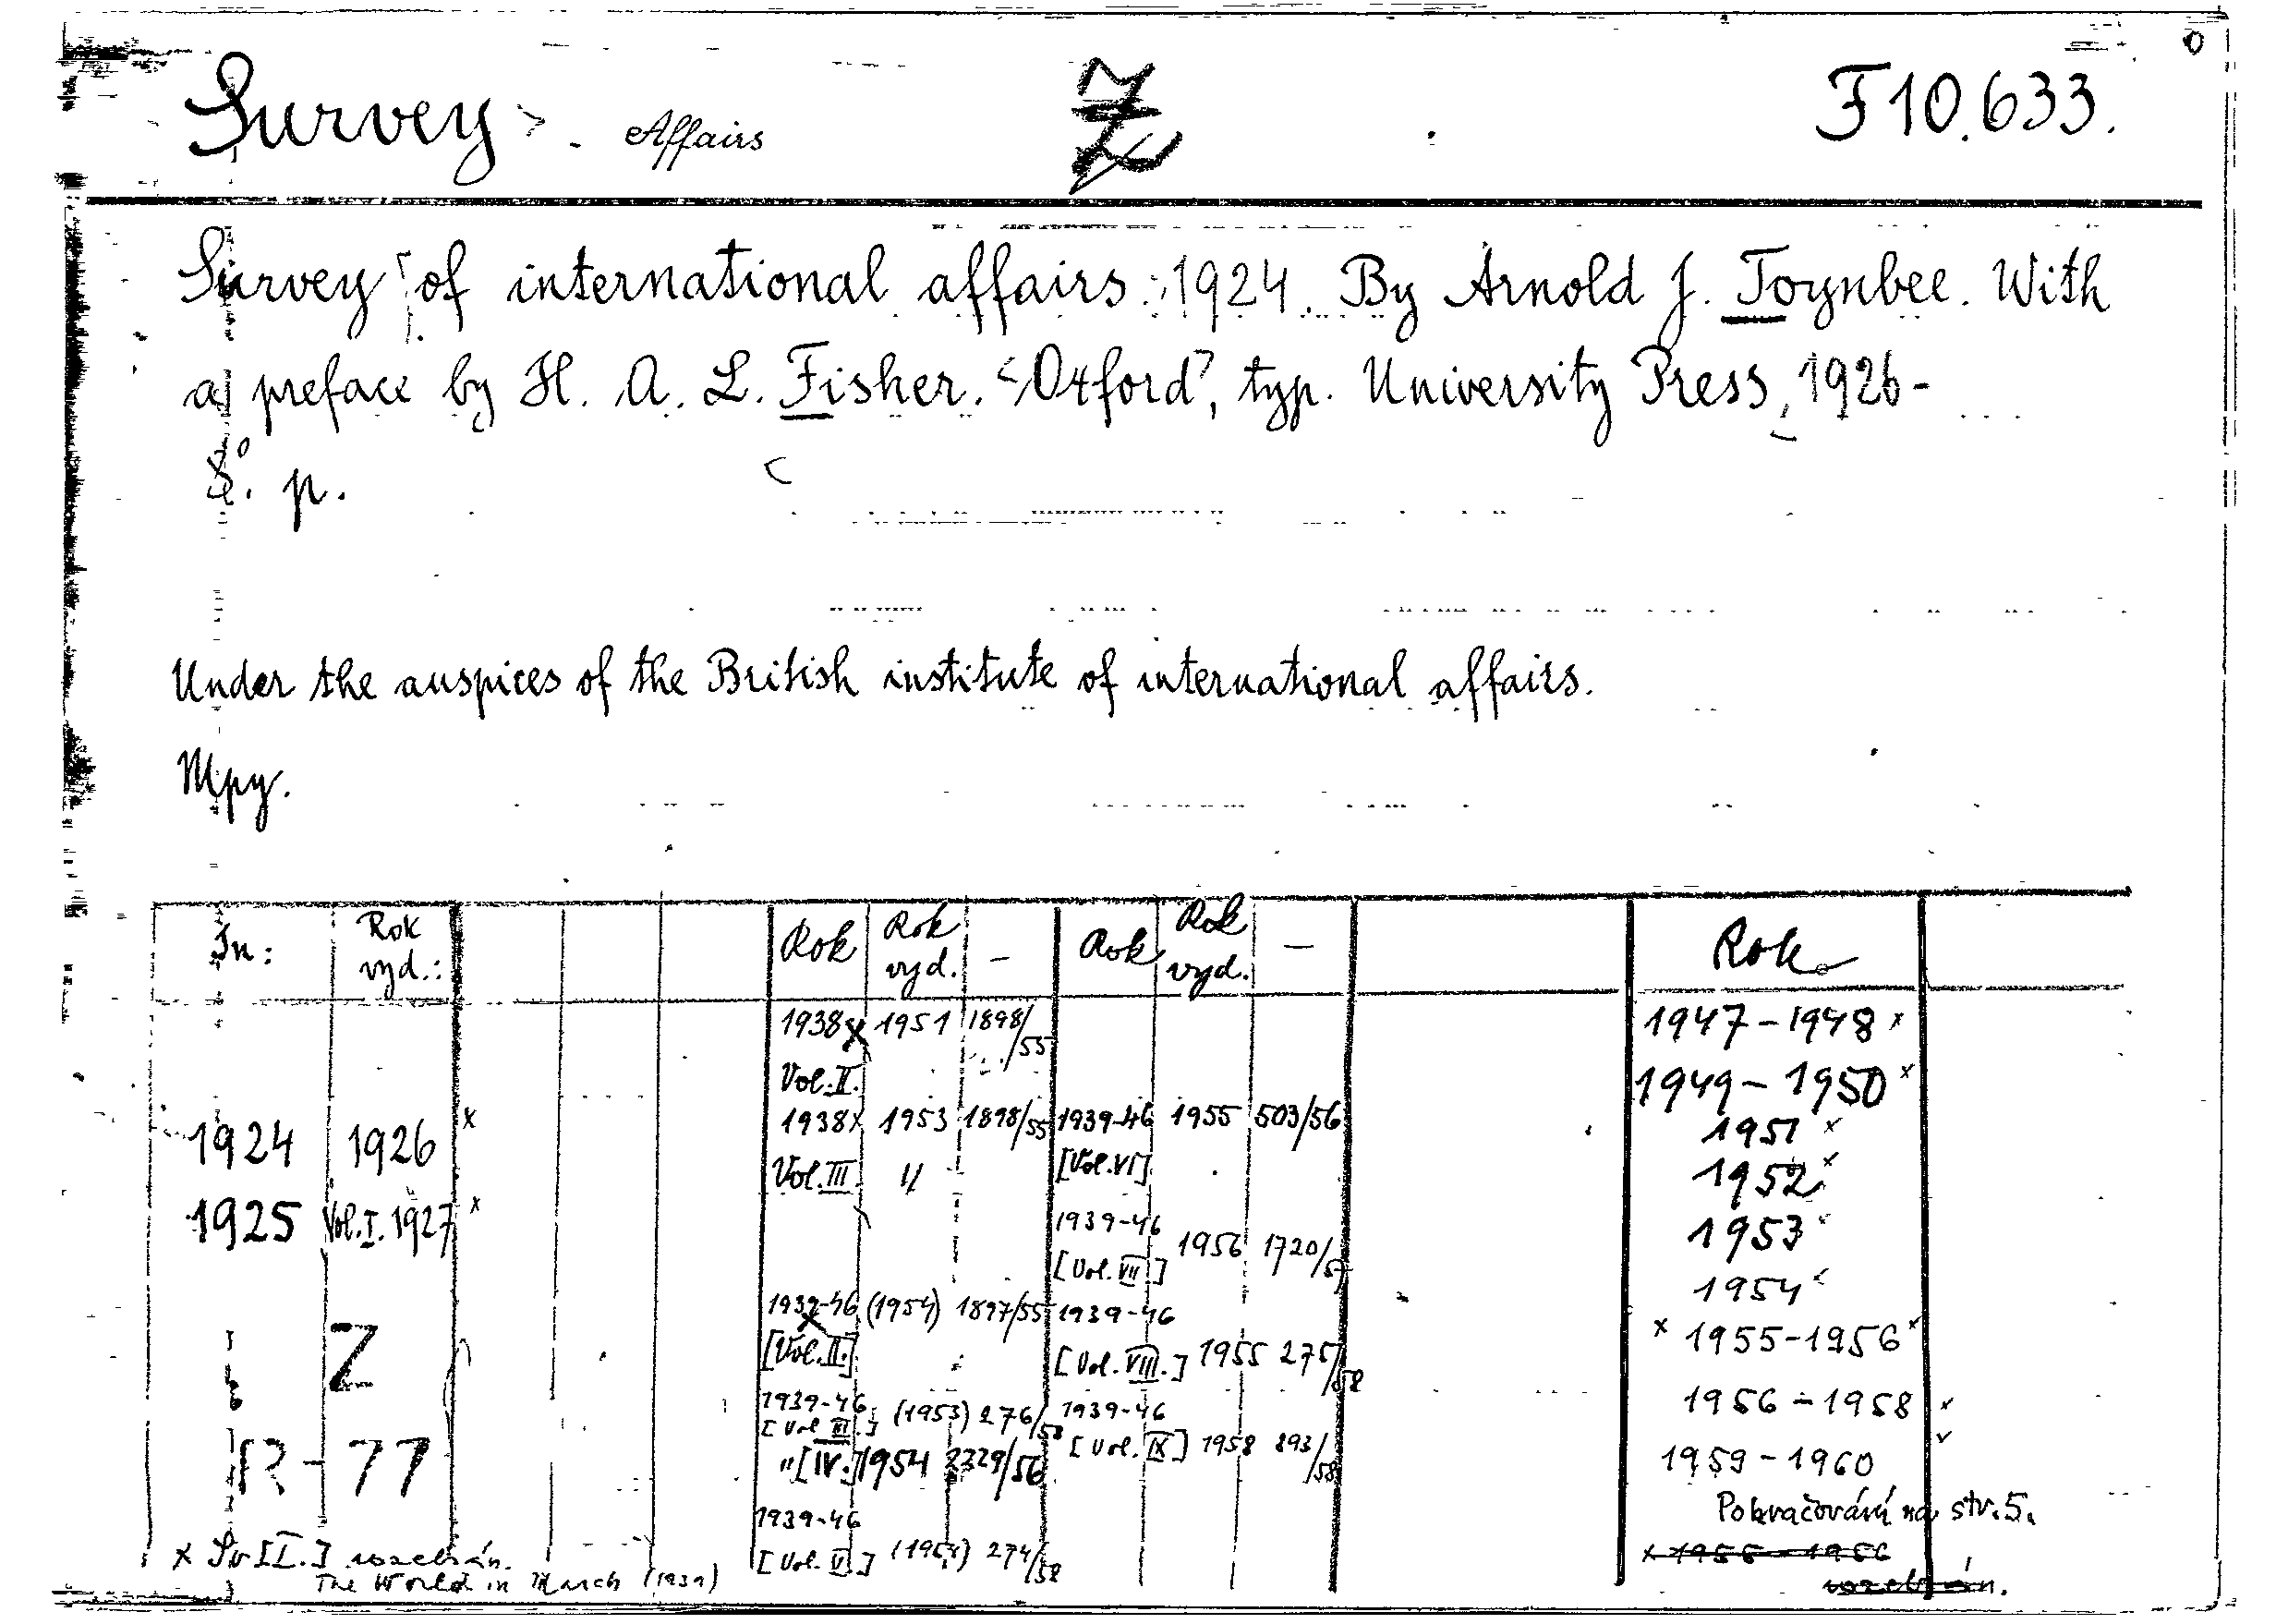 Survey Affairs Z F 10.633.
Survey of international affairs: 1924. By Arnold J. Toynbee. With
a preface by H. A. L. Fisher. <Oxford>, typ. University Press, 1926-
8°. p.
Under the auspices of the British institute of international affairs.
Mpy.
In: Rok vyd.: Rok Rok vyd. — Rok Rok vyd. — Rok
1938 x 1951 1898/55 1947-1948 x
Vol. II. 1949-1950 x
1924 1926 x 1938 x 1953 1898/55 1939-46 1955 503/56 1951 x
Vol. III " [Vol. VI] 1952 x
1925 Vol. I. 1927 x 1939-46 1953
[Vol. VII] 1956 1720/57 1954
1939-46 (1954) 1897/55 1939-46 x 1955-1956 x
Z [Vol. II.] [Vol. VIII.] 1955 275/58
1939-46 [Vol III.] (1953) 276/58 1939-46 1956-1958 x
R-77 " [IV.] 1954 2329/56 [Vol. IX] 1958 893/58 1959-1960
1939-46 Pokračování na str. 5.
x Sv [I.] rozebrán. [Vol. V.] (1954) 274/58 x 1955-1956
The World in March (1939) rozebrán.